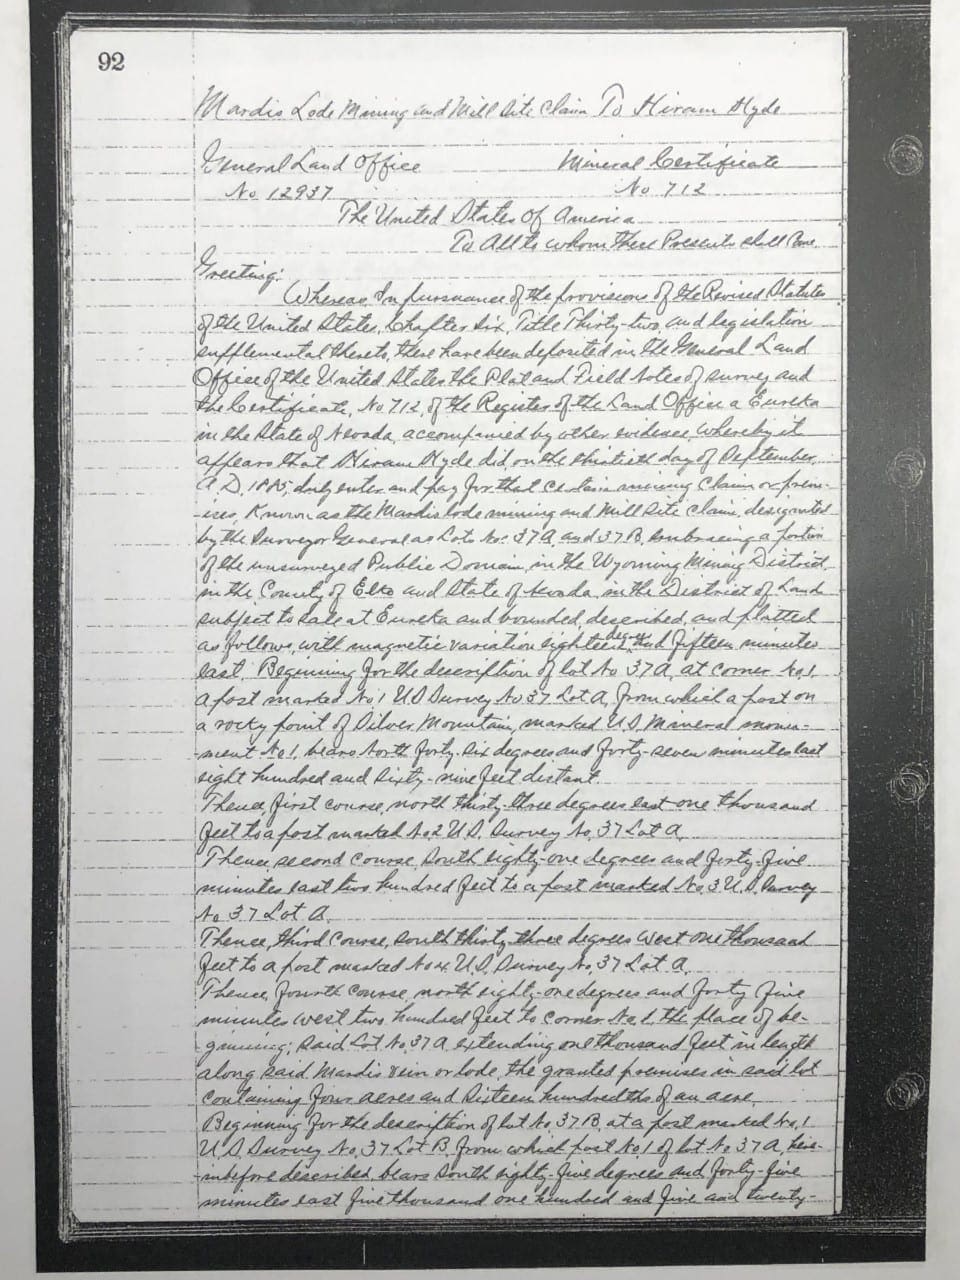 92
Mardis Lode Mining and Mill Site Claim To Hiram Hyde
General Land Office Mineral Certificate
No 12937 No 712
The United States Of America
To All to whom these Presents shall Come
Greeting:
Whereas, In pursuance of the provisions of the Revised Statutes
of the United States, Chapter Six, Title Thirty-two, and legislation
supplemental thereto, there have been deposited in the General Land
Office of the United States the Plat and Field Notes of survey and
the Certificate, No 712, of the Register of the Land Office a Eureka
in the State of Nevada, accompanied by other evidence, whereby it
appears that Hiram Hyde did, on the thirtieth day of September,
A.D. 1885, duly enter and pay for that certain mining Claim or prem-
-ises, Known as the Mardis lode mining and Mill Site Claim, designated
by the Surveyor General as Lots No: 37 A, and 37 B, embracing a portion
of the unsurveyed Public Domain, in the Wyoming Mining District,
in the County of Elko and State of Nevada, in the District of Land
subject to sale at Eureka and bounded, described, and platted
as follows, with magnetic variation eighteen degrees and fifteen minutes
east. Beginning for the description of lot No 37 A, at corner No 1
a post marked No 1 U.S Survey No 37 Lot A, from which a post on
a rocky point of Silver Mountain, marked U.S Mineral monu-
-ment No 1, bears North forty-six degrees and forty-seven minutes east
eight hundred and sixty-nine feet distant.
Thence, first course, north thirty-three degrees east one thousand
feet to a post marked No 2 U.S. Survey No. 37 Lot A.
Thence, second course, south eighty-one degrees and forty-five
minutes east two hundred feet to a post marked No. 3 U.S. Survey
No 37 Lot A.
Thence, third course, south thirty-three degrees west one thousand
feet to a post marked No 4 U.S. Survey No. 37 Lot A.
Thence, fourth course, north eighty-one degrees and forty five
minutes west two hundred feet to corner No 1, the place of be-
-ginning; said Lot No. 37 A extending one thousand feet in length
along said Mardis vein or lode, the granted premises in said lot
containing four acres and sixteen hundredths of an acre.
Beginning for the description of lot No 37 B, at a post marked No. 1
U.S Survey No. 37 Lot B, from which post No 1 of lot No 37 A, here-
-inbefore described bears south eighty-five degrees and forty-five
minutes east five thousand one hundred and five and twenty-